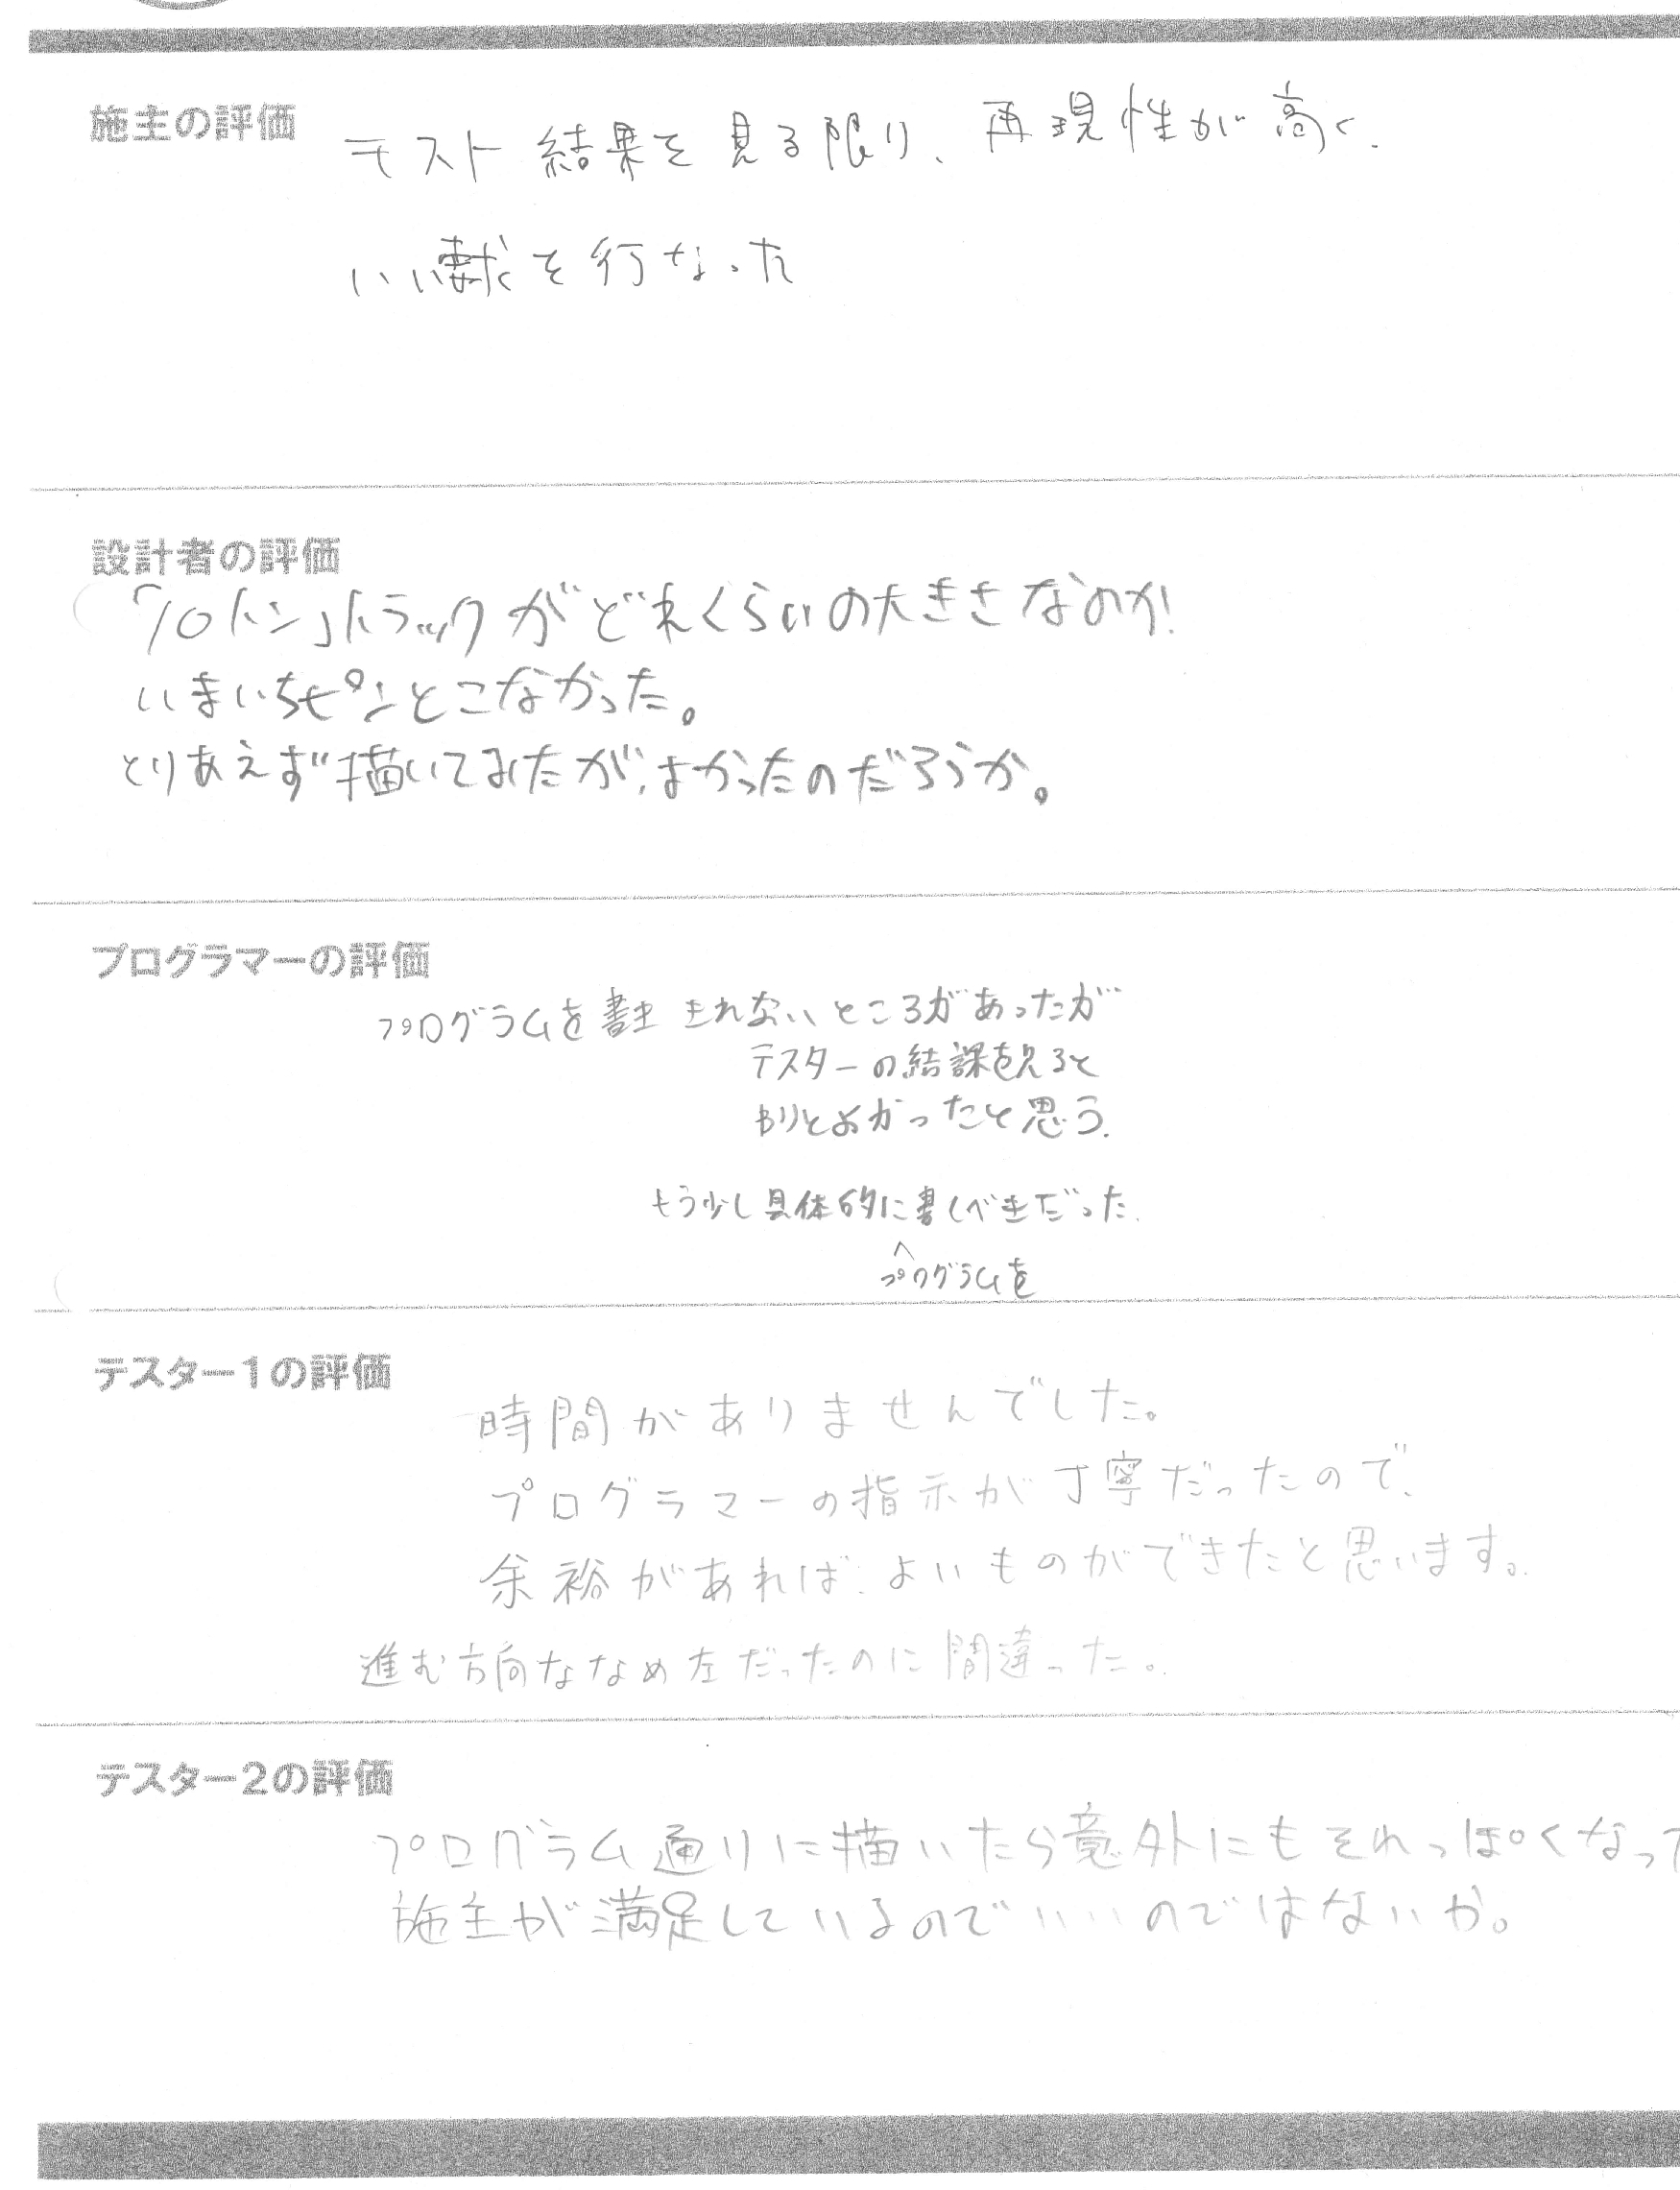 施主の評価
テスト結果を見る限り、再現性が高く、
いい を行なった
設計者の評価
「10トン」トラックがどれくらいの大きさなのか!
いまいちピンとこなかった。
とりあえず描いてみたが、よかったのだろうか。
プログラマーの評価
プログラムを書ききれないところがあったが
テスターの結課を見ると
わりとよかったと思う.
もう少し具体的に書くべきだった.
^
プログラムを
テスター1の評価
時間がありませんでした。
プログラマーの指示が丁寧だったので、
余裕があれば、よいものができたと思います。
進む方向ななめ左だったのに間違った。
テスター2の評価
プログラム通りに描いたら意外にもそれっぽくなった
施主が満足しているのでいいのではないか。